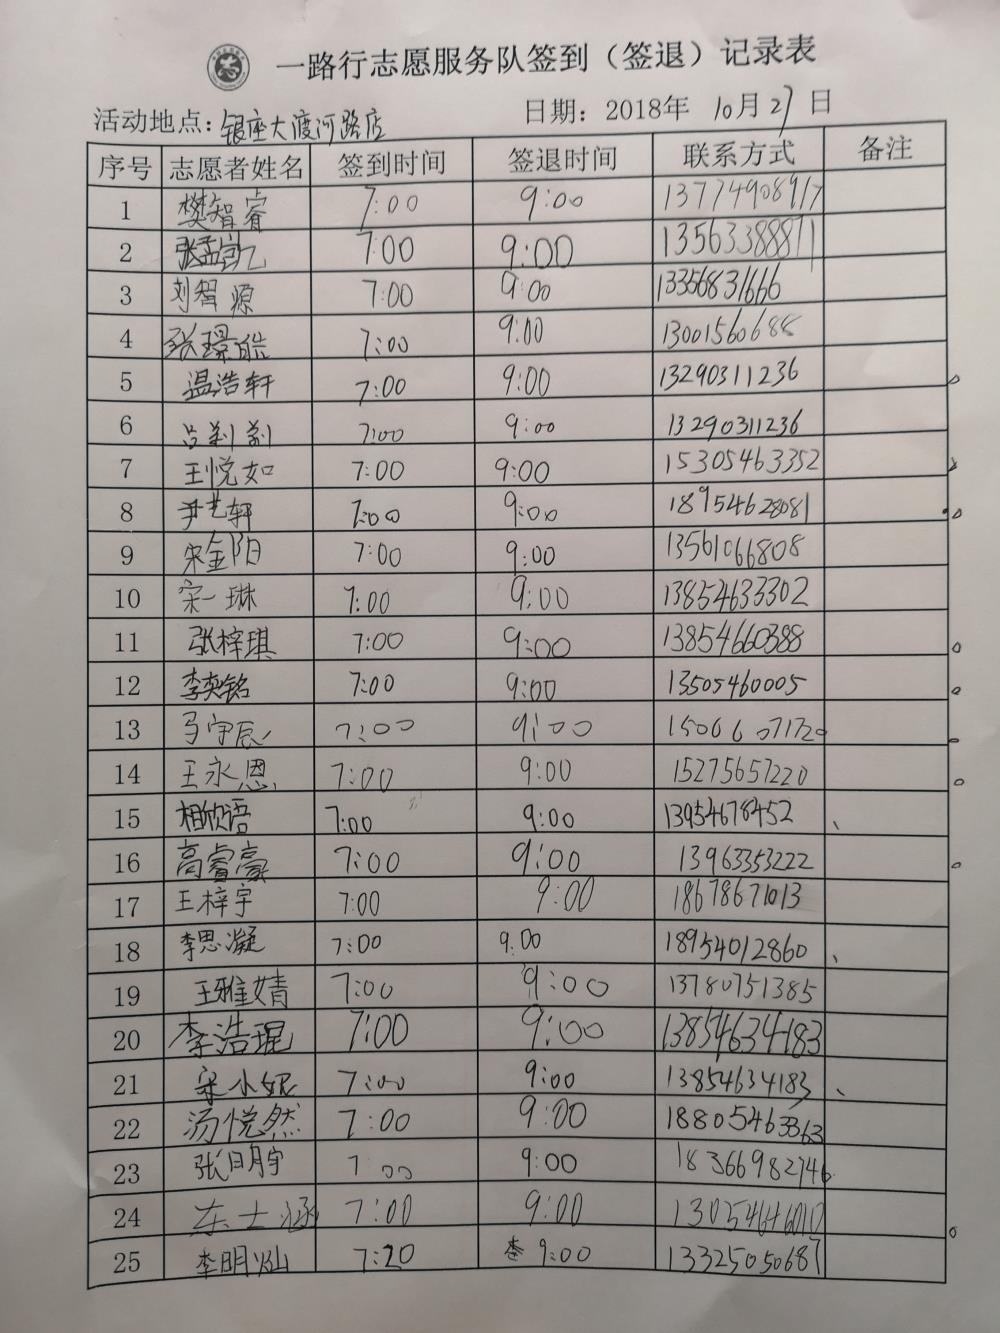 一路行志愿服务队签到（签退）记录表
活动地点：银座大渡河路店 日期：2018年 10月27日
序号 志愿者姓名 签到时间 签退时间 联系方式 备注
1 樊智睿 7:00 9:00 13774908917
2 张孟 7:00 9:00 13563388811
3 刘智源 7:00 9:00 13356831666
4 张璟皓 7:00 9:00 13001560688
5 温浩轩 7:00 9:00 13290311236
6 吕 7:00 9:00 13290311236
7 王悦如 7:00 9:00 15305463352
8 尹艺轩 7:00 9:00 18954628081
9 宋金阳 7:00 9:00 13561066808
10 宋一琳 7:00 9:00 13854633302
11 张梓琪 7:00 9:00 13854660388
12 李奕铭 7:00 9:00 13505460005
13 马宇辰 7:00 9:00 15066071720
14 王永恩 7:00 9:00 15275657220
15 相欣语 7:00 9:00 13954678452
16 高睿豪 7:00 9:00 13963353222
17 王梓宇 7:00 9:00 18678671013
18 李思凝 7:00 9:00 18954012860
19 王雅婧 7:00 9:00 13780751385
20 李浩琨 7:00 9:00 13854634183
21 宋小妮 7:00 9:00 13854634183
22 汤悦然 7:00 9:00 18805463363
23 张明宇 7:00 9:00 18366982746
24 东士涵 7:00 9:00 13054646010
25 李明灿 7:20 9:00 13325050687